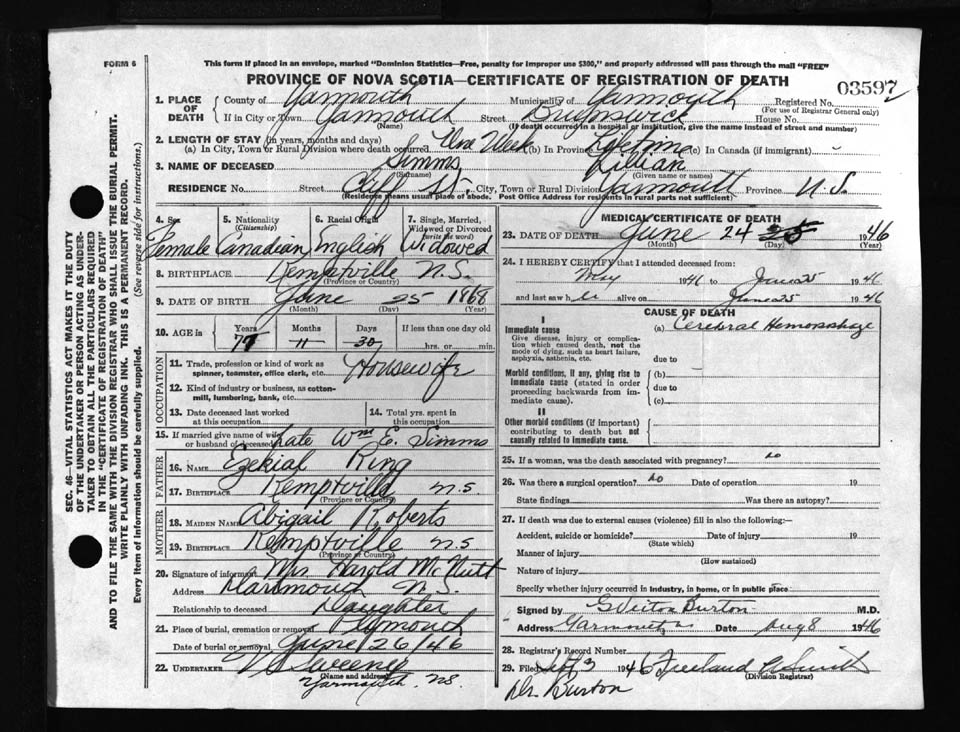 FORM 6
This form if placed in an envelope, marked "Dominion Statistics—Free, penalty for improper use $300," and properly addressed will pass through the mail "FREE"
PROVINCE OF NOVA SCOTIA—CERTIFICATE OF REGISTRATION OF DEATH
03597
1. PLACE OF DEATH
County of Yarmouth Municipality of Yarmouth Registered No.
(For use of Registrar General only)
If in City or Town Yarmouth Street Brunswick House No.
(Name) (If death occurred in a hospital or institution, give the name instead of street and number)
2. LENGTH OF STAY (in years, months and days)
(a) In City, Town or Rural Division where death occurred One Week (b) In Province Lifetime (c) In Canada (if immigrant) -
3. NAME OF DECEASED Simms Lillian
(Surname) (Given name or names)
RESIDENCE No. Street Cliff St. City, Town or Rural Division Yarmouth Province N.S.
(Residence means usual place of abode. Post Office Address for residents in rural parts not sufficient)
4. Sex 5. Nationality (Citizenship) 6. Racial Origin 7. Single, Married, Widowed or Divorced (write the word)
Female Canadian English Widowed
8. BIRTHPLACE Kemptville N.S.
(Province or Country)
9. DATE OF BIRTH June 25 1868
(Month) (Day) (Year)
10. AGE in Years Months Days If less than one day old
77 11 30 hrs. or min.
OCCUPATION
11. Trade, profession or kind of work as spinner, teamster, office clerk, etc. Housewife
12. Kind of industry or business, as cotton-mill, lumbering, bank, etc.
13. Date deceased last worked at this occupation 14. Total yrs. spent in this occupation
15. If married give name of wife or husband of deceased Late Wm E. Simms
FATHER
16. NAME Ezekial Ring
17. BIRTHPLACE Kemptville N.S.
(Province or Country)
MOTHER
18. MAIDEN NAME Abigail Roberts
19. BIRTHPLACE Kemptville N.S
(Province or Country)
20. Signature of informant Mrs Harold McNutt
Address Dartmouth N.S.
Relationship to deceased Daughter
21. Place of burial, cremation or removal Plymouth
Date of burial or removal June 26/46
22. UNDERTAKER V S Sweeney
(Name and address)
Yarmouth, NS.
MEDICAL CERTIFICATE OF DEATH
23. DATE OF DEATH June 24 25 1946
(Month) (Day) (Year)
24. I HEREBY CERTIFY that I attended deceased from:
May 1946 to June 25 1946
and last saw her alive on June 25 1946
CAUSE OF DEATH
I
Immediate cause (a) Cerebral Hemorrhage
Give disease, injury or complication which caused death, not the mode of dying, such as heart failure, asphyxia, asthenia, etc.
due to
Morbid conditions, if any, giving rise to immediate cause (stated in order proceeding backwards from immediate cause).
(b)
due to
(c)
II
Other morbid conditions (if important) contributing to death but not causally related to immediate cause.
25. If a woman, was the death associated with pregnancy? no
26. Was there a surgical operation? no Date of operation 19
State findings Was there an autopsy?
27. If death was due to external causes (violence) fill in also the following:—
Accident, suicide or homicide? Date of injury 19
(State which)
Manner of injury
(How sustained)
Nature of injury
Specify whether injury occurred in industry, in home, or in public place
Signed by G Victor Burton M.D.
Address Yarmouth Date Aug 8 1946
28. Registrar's Record Number
29. Filed Sept 3 1946 Freeland
(Division Registrar)
Dr. Burton
SEC. 46—VITAL STATISTICS ACT MAKES IT THE DUTY
OF THE UNDERTAKER OR PERSON ACTING AS UNDERTAKER TO OBTAIN ALL THE PARTICULARS REQUIRED
IN THE "CERTIFICATE OF REGISTRATION OF DEATH"
AND TO FILE THE SAME WITH THE DIVISION REGISTRAR WHO SHALL ISSUE THE BURIAL PERMIT.
WRITE PLAINLY WITH UNFADING INK. THIS IS A PERMANENT RECORD.
Every item of information should be carefully supplied. (See reverse side for instructions.)